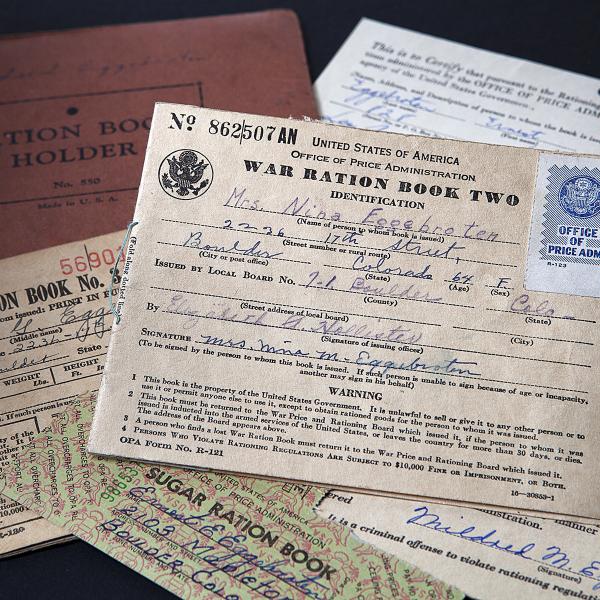 TION BOO
HOLDER
No. 550
Made in U. S. A.
This is to Certify that pursuant to the Rationing
administered by the OFFICE OF PRICE ADM
agency of the United States Government.
Name, Address, and Description of person to whom the book is
Eggebroten Ernest
No 862507AN
UNITED STATES OF AMERICA
OFFICE OF PRICE ADMINISTRATION
WAR RATION BOOK TWO
IDENTIFICATION
Mrs. Nina Eggebroten
(Name of person to whom book is issued)
2226 17th Street,
(Street number or rural route)
Boulder Colorado 64 F
(City or post office) (State) (Age) (Sex)
ISSUED BY LOCAL BOARD NO. 7-1 Boulder Colo-
(County) (State)
(Street address of local board) (City)
By Hollister
(Signature of issuing officer)
SIGNATURE Mrs. Nina M. Eggebroten
(To be signed by the person to whom this book is issued. If such person is unable to sign because of age or incapacity,
another may sign in his behalf)
WARNING
1 This book is the property of the United States Government. It is unlawful to sell or give it to any other person or to
use it or permit anyone else to use it, except to obtain rationed goods for the person to whom it was issued.
2 This book must be returned to the War Price and Rationing Board which issued it, if the person to whom it was
issued is inducted into the armed services of the United States, or leaves the country for more than 30 days, or dies.
The address of the Board appears above.
3 A person who finds a lost War Ration Book must return it to the War Price and Rationing Board which issued it.
4 PERSONS WHO VIOLATE RATIONING REGULATIONS ARE SUBJECT TO $10,000 FINE OR IMPRISONMENT, OR BOTH.
OPA Form No. R-121
16—30853-1
OFFICE
OF
PRICE ADM
R-123
ON BOOK No. 3
PRINT IN FU
(Middle name)
WEIGHT HEIGHT
Lbs. Ft.
SUGAR RATION BOOK
Ernest E. Eggebroten
BOULDER COLO
It is a criminal offense to violate rationing regulations
Mildred M. E
(Signature)